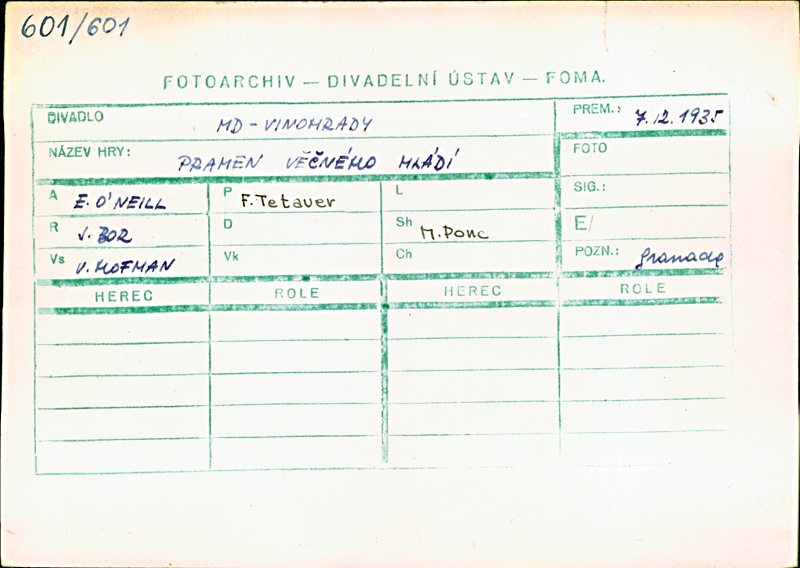 601/601
FOTOARCHIV — DIVADELNÍ ÚSTAV — FOMA.
DIVADLO MD - VINOHRADY PREM.: 7.12.1935
NÁZEV HRY: PRAMEN VĚČNÉHO MLÁDÍ FOTO
A E. O'NEILL P F. Tetauer L SIG.:
R J. BOR D Sh M. Ponc E/
Vs V. HOFMAN Vk Ch POZN.: Granada
HEREC ROLE HEREC ROLE